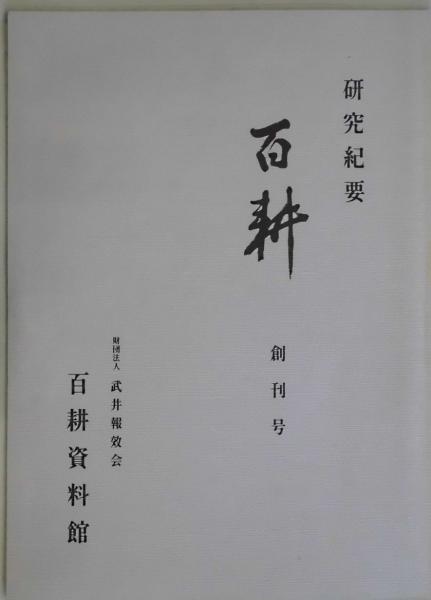 研究紀要
百耕
創刊号
財団法人 武井報效会
百耕資料館